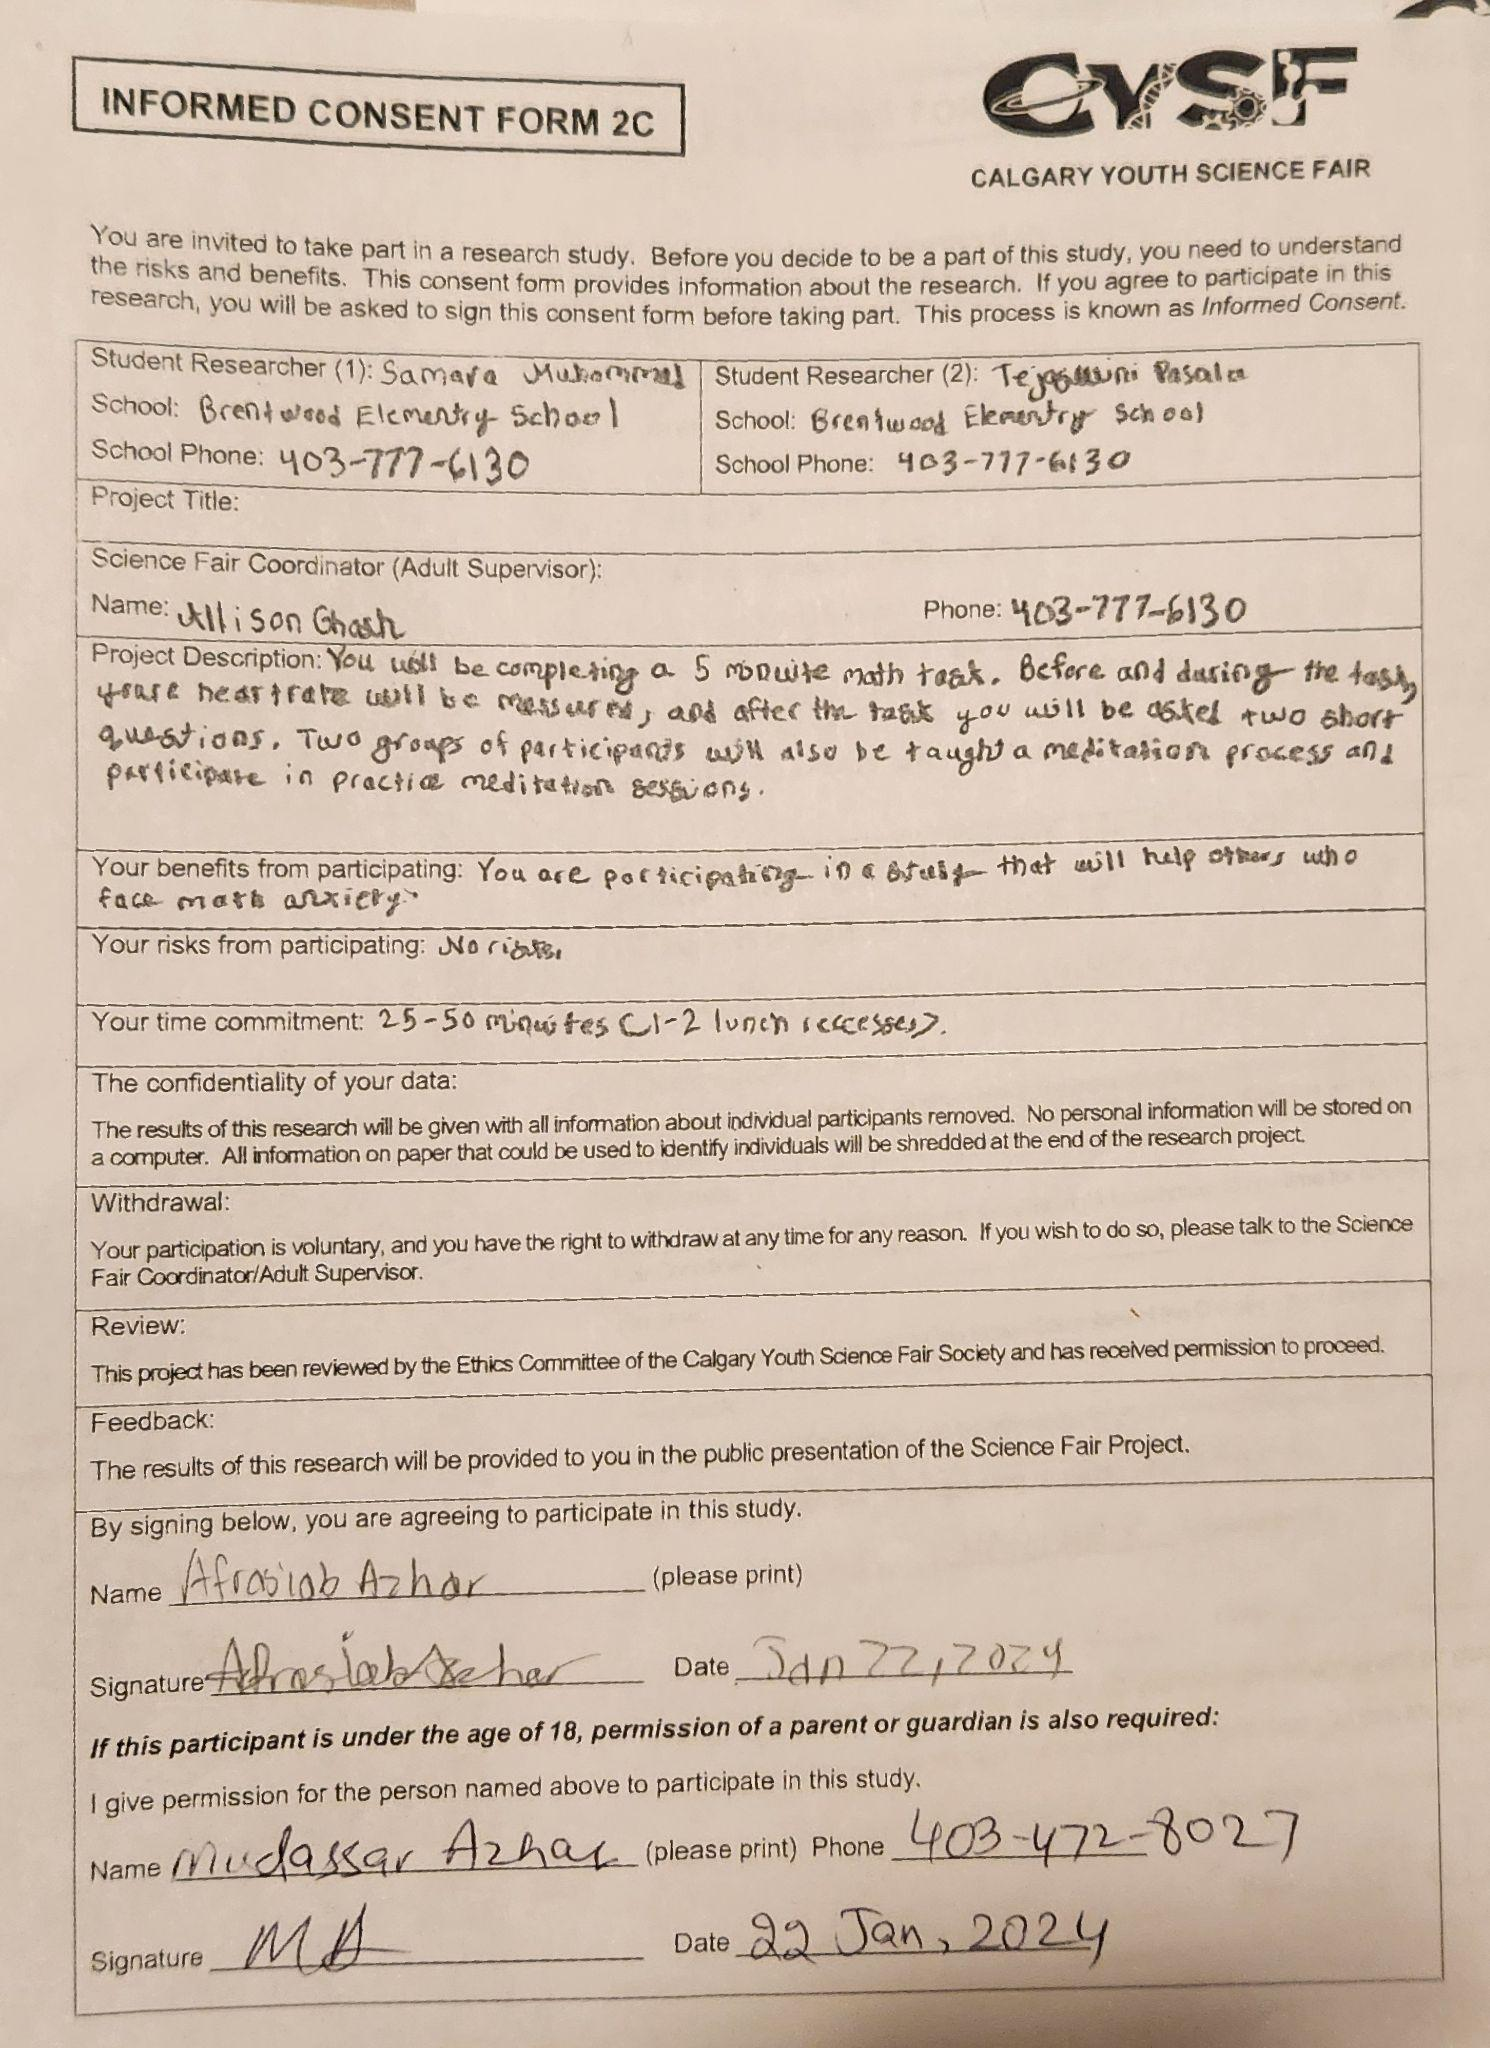 INFORMED CONSENT FORM 2C
CYSF
CALGARY YOUTH SCIENCE FAIR
You are invited to take part in a research study. Before you decide to be a part of this study, you need to understand
the risks and benefits. This consent form provides information about the research. If you agree to participate in this
research, you will be asked to sign this consent form before taking part. This process is known as Informed Consent.
Student Researcher (1): Samara Muhammed
School: Brentwood Elementry School
School Phone: 403-777-6130
Student Researcher (2): Pasala
School: Brentwood Elementry School
School Phone: 403-777-6130
Project Title:
Science Fair Coordinator (Adult Supervisor):
Name: Allison Ghosh
Phone: 403-777-6130
Project Description: You will be completing a 5 minuite math task. Before and during the task,
youre heartrate will be messured, and after the task you will be asked two short
questions. Two groups of participants will also be taught a meditation process and
participate in practice meditation sessions.
Your benefits from participating: You are participating in a study that will help others who
face math anxiety.
Your risks from participating: No risks.
Your time commitment: 25-50 minuites (1-2 lunch reccesses).
The confidentiality of your data:
The results of this research will be given with all information about individual participants removed. No personal information will be stored on
a computer. All information on paper that could be used to identify individuals will be shredded at the end of the research project.
Withdrawal:
Your participation is voluntary, and you have the right to withdraw at any time for any reason. If you wish to do so, please talk to the Science
Fair Coordinator/Adult Supervisor.
Review:
This project has been reviewed by the Ethics Committee of the Calgary Youth Science Fair Society and has received permission to proceed.
Feedback:
The results of this research will be provided to you in the public presentation of the Science Fair Project.
By signing below, you are agreeing to participate in this study.
Name Afrasiab Azhar (please print)
Signature Afrasiab Azhar Date Jan 22, 2024
If this participant is under the age of 18, permission of a parent or guardian is also required:
I give permission for the person named above to participate in this study.
Name Mudassar Azhar (please print) Phone 403-472-8027
Signature MA Date 22 Jan, 2024